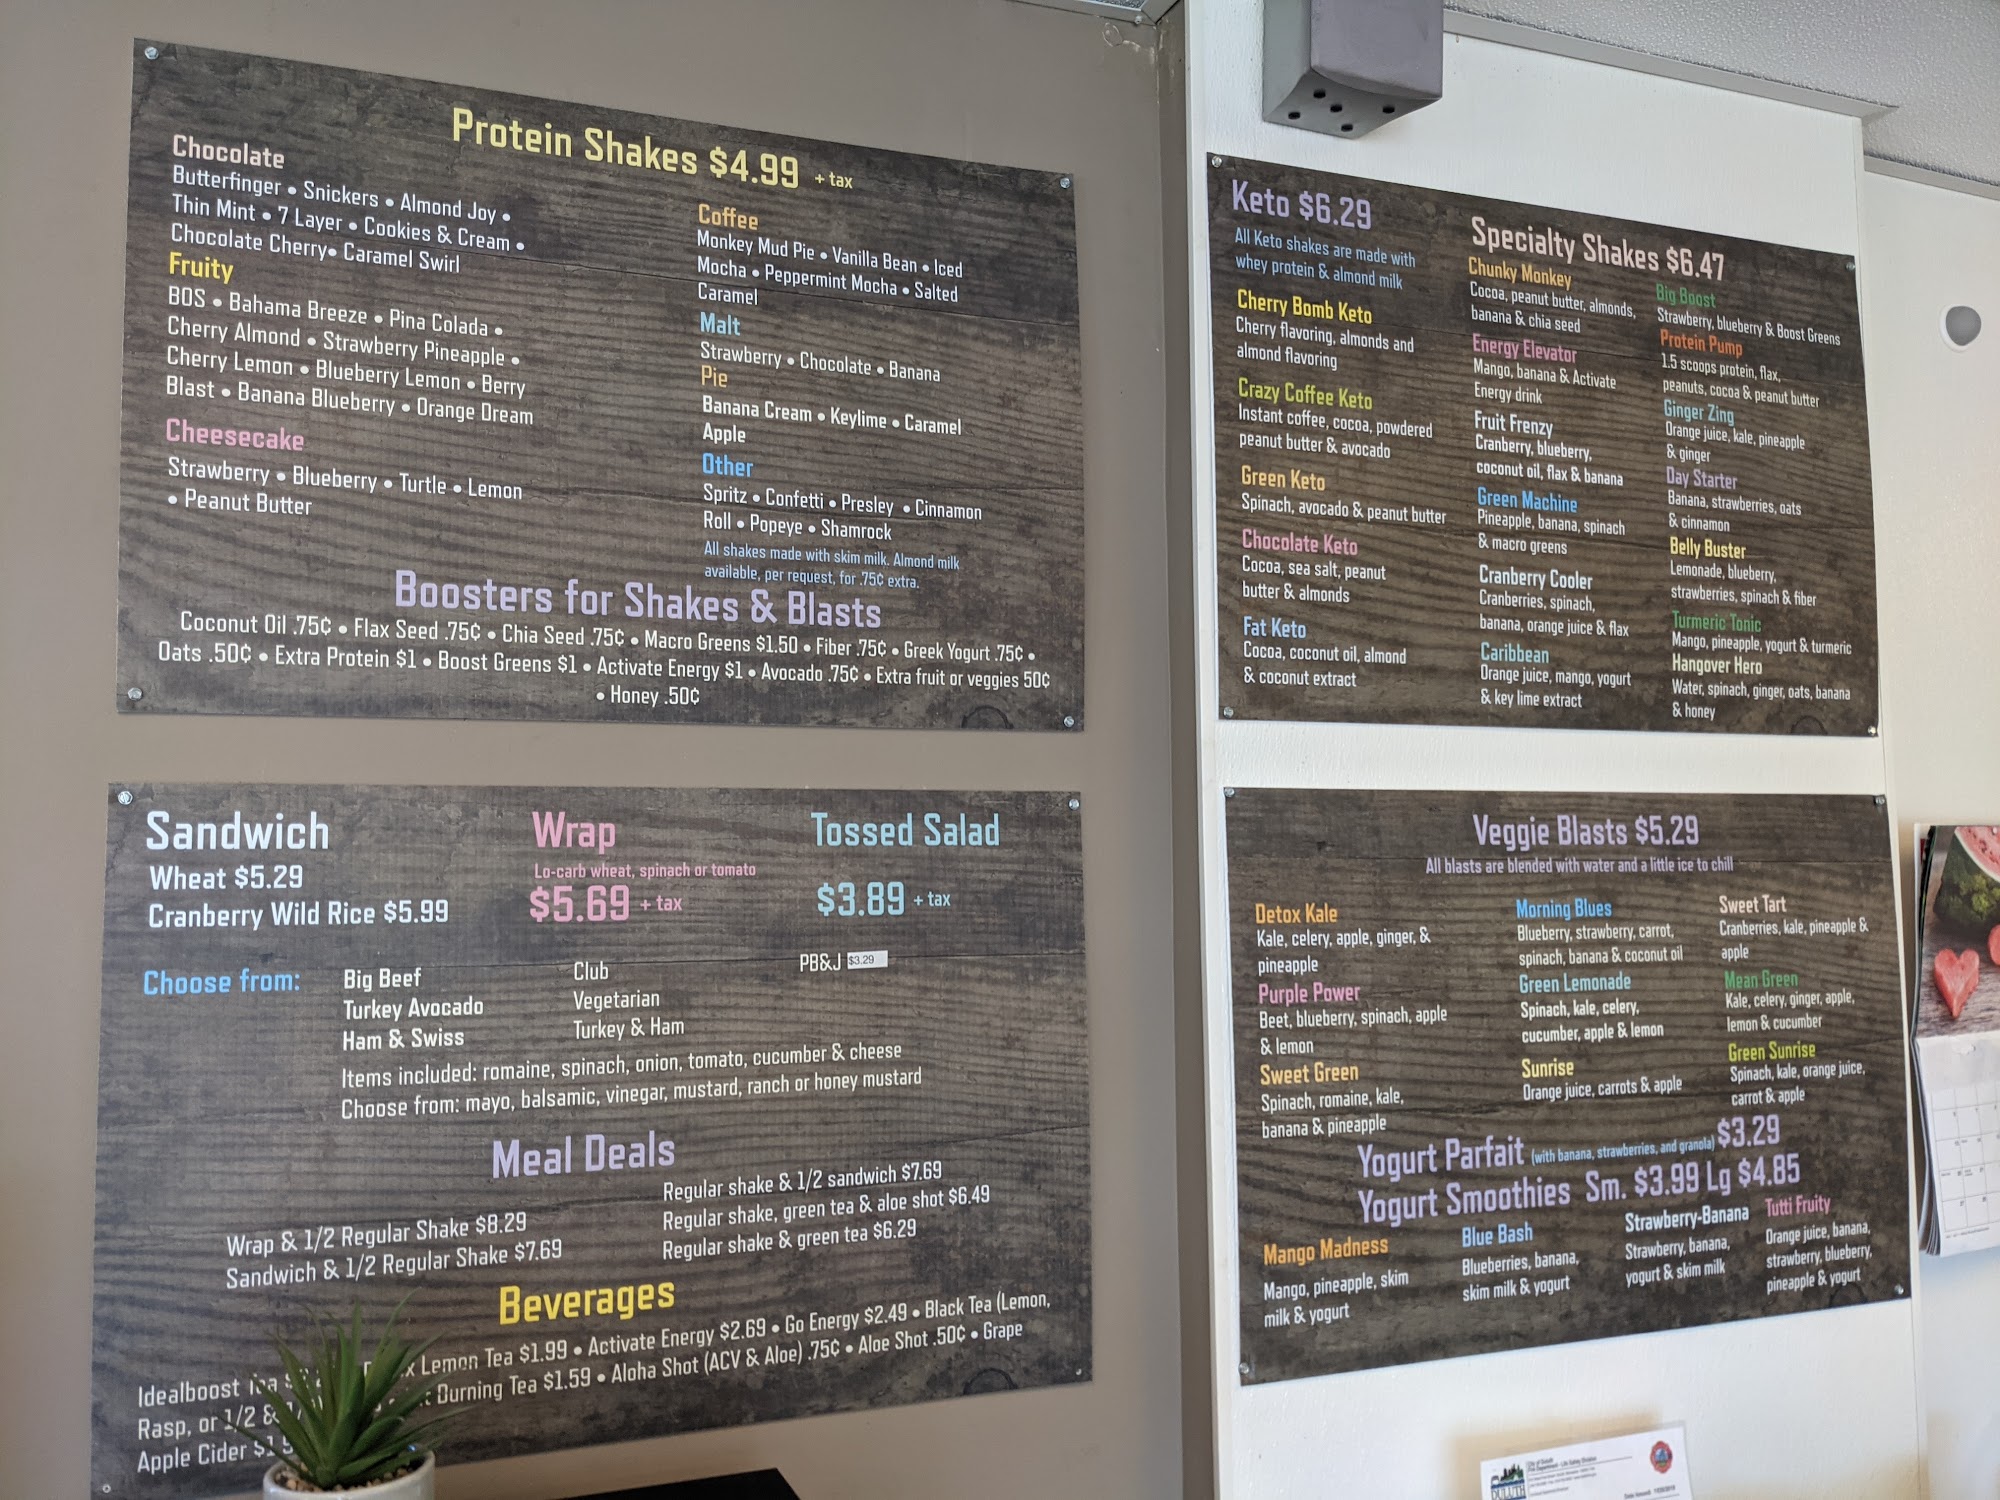 Protein Shakes $4.99 + tax
Chocolate
Butterfinger • Snickers • Almond Joy •
Thin Mint • 7 Layer • Cookies & Cream •
Chocolate Cherry• Caramel Swirl
Fruity
BOS • Bahama Breeze • Pina Colada •
Cherry Almond • Strawberry Pineapple •
Cherry Lemon • Blueberry Lemon • Berry
Blast • Banana Blueberry • Orange Dream
Cheesecake
Strawberry • Blueberry • Turtle • Lemon
• Peanut Butter
Coffee
Monkey Mud Pie • Vanilla Bean • Iced
Mocha • Peppermint Mocha • Salted
Caramel
Malt
Strawberry • Chocolate • Banana
Pie
Banana Cream • Keylime • Caramel
Apple
Other
Spritz • Confetti • Presley • Cinnamon
Roll • Popeye • Shamrock
All shakes made with skim milk. Almond milk
available, per request, for .75¢ extra.
Boosters for Shakes & Blasts
Coconut Oil .75¢ • Flax Seed .75¢ • Chia Seed .75¢ • Macro Greens $1.50 • Fiber .75¢ • Greek Yogurt .75¢ •
Oats .50¢ • Extra Protein $1 • Boost Greens $1 • Activate Energy $1 • Avocado .75¢ • Extra fruit or veggies 50¢
• Honey .50¢
Keto $6.29
All Keto shakes are made with
whey protein & almond milk
Cherry Bomb Keto
Cherry flavoring, almonds and
almond flavoring
Crazy Coffee Keto
Instant coffee, cocoa, powdered
peanut butter & avocado
Green Keto
Spinach, avocado & peanut butter
Chocolate Keto
Cocoa, sea salt, peanut
butter & almonds
Fat Keto
Cocoa, coconut oil, almond
& coconut extract
Specialty Shakes $6.47
Chunky Monkey
Cocoa, peanut butter, almonds,
banana & chia seed
Energy Elevator
Mango, banana & Activate
Energy drink
Fruit Frenzy
Cranberry, blueberry,
coconut oil, flax & banana
Green Machine
Pineapple, banana, spinach
& macro greens
Cranberry Cooler
Cranberries, spinach,
banana, orange juice & flax
Caribbean
Orange juice, mango, yogurt
& key lime extract
Big Boost
Strawberry, blueberry & Boost Greens
Protein Pump
1.5 scoops protein, flax,
peanuts, cocoa & peanut butter
Ginger Zing
Orange juice, kale, pineapple
& ginger
Day Starter
Banana, strawberries, oats
& cinnamon
Belly Buster
Lemonade, blueberry,
strawberries, spinach & fiber
Turmeric Tonic
Mango, pineapple, yogurt & turmeric
Hangover Hero
Water, spinach, ginger, oats, banana
& honey
Sandwich
Wheat $5.29
Cranberry Wild Rice $5.99
Wrap
Lo-carb wheat, spinach or tomato
$5.69 + tax
Tossed Salad
$3.89 + tax
Choose from:
Big Beef
Turkey Avocado
Ham & Swiss
Club
Vegetarian
Turkey & Ham
PB&J $3.29
Items included: romaine, spinach, onion, tomato, cucumber & cheese
Choose from: mayo, balsamic, vinegar, mustard, ranch or honey mustard
Meal Deals
Wrap & 1/2 Regular Shake $8.29
Sandwich & 1/2 Regular Shake $7.69
Regular shake & 1/2 sandwich $7.69
Regular shake, green tea & aloe shot $6.49
Regular shake & green tea $6.29
Beverages
Idealboost Tea Lemon Tea $1.99 • Activate Energy $2.69 • Go Energy $2.49 • Black Tea (Lemon,
Rasp, or 1/2 & Burning Tea $1.59 • Aloha Shot (ACV & Aloe) .75¢ • Aloe Shot .50¢ • Grape
Apple Cider
Veggie Blasts $5.29
All blasts are blended with water and a little ice to chill
Detox Kale
Kale, celery, apple, ginger, &
pineapple
Purple Power
Beet, blueberry, spinach, apple
& lemon
Sweet Green
Spinach, romaine, kale,
banana & pineapple
Morning Blues
Blueberry, strawberry, carrot,
spinach, banana & coconut oil
Green Lemonade
Spinach, kale, celery,
cucumber, apple & lemon
Sunrise
Orange juice, carrots & apple
Sweet Tart
Cranberries, kale, pineapple &
apple
Mean Green
Kale, celery, ginger, apple,
lemon & cucumber
Green Sunrise
Spinach, kale, orange juice,
carrot & apple
Yogurt Parfait (with banana, strawberries, and granola) $3.29
Yogurt Smoothies Sm. $3.99 Lg $4.85
Mango Madness
Mango, pineapple, skim
milk & yogurt
Blue Bash
Blueberries, banana,
skim milk & yogurt
Strawberry-Banana
Strawberry, banana,
yogurt & skim milk
Tutti Fruity
Orange juice, banana,
strawberry, blueberry,
pineapple & yogurt
City of Duluth
Fire Department - Life Safety Division
DULUTH